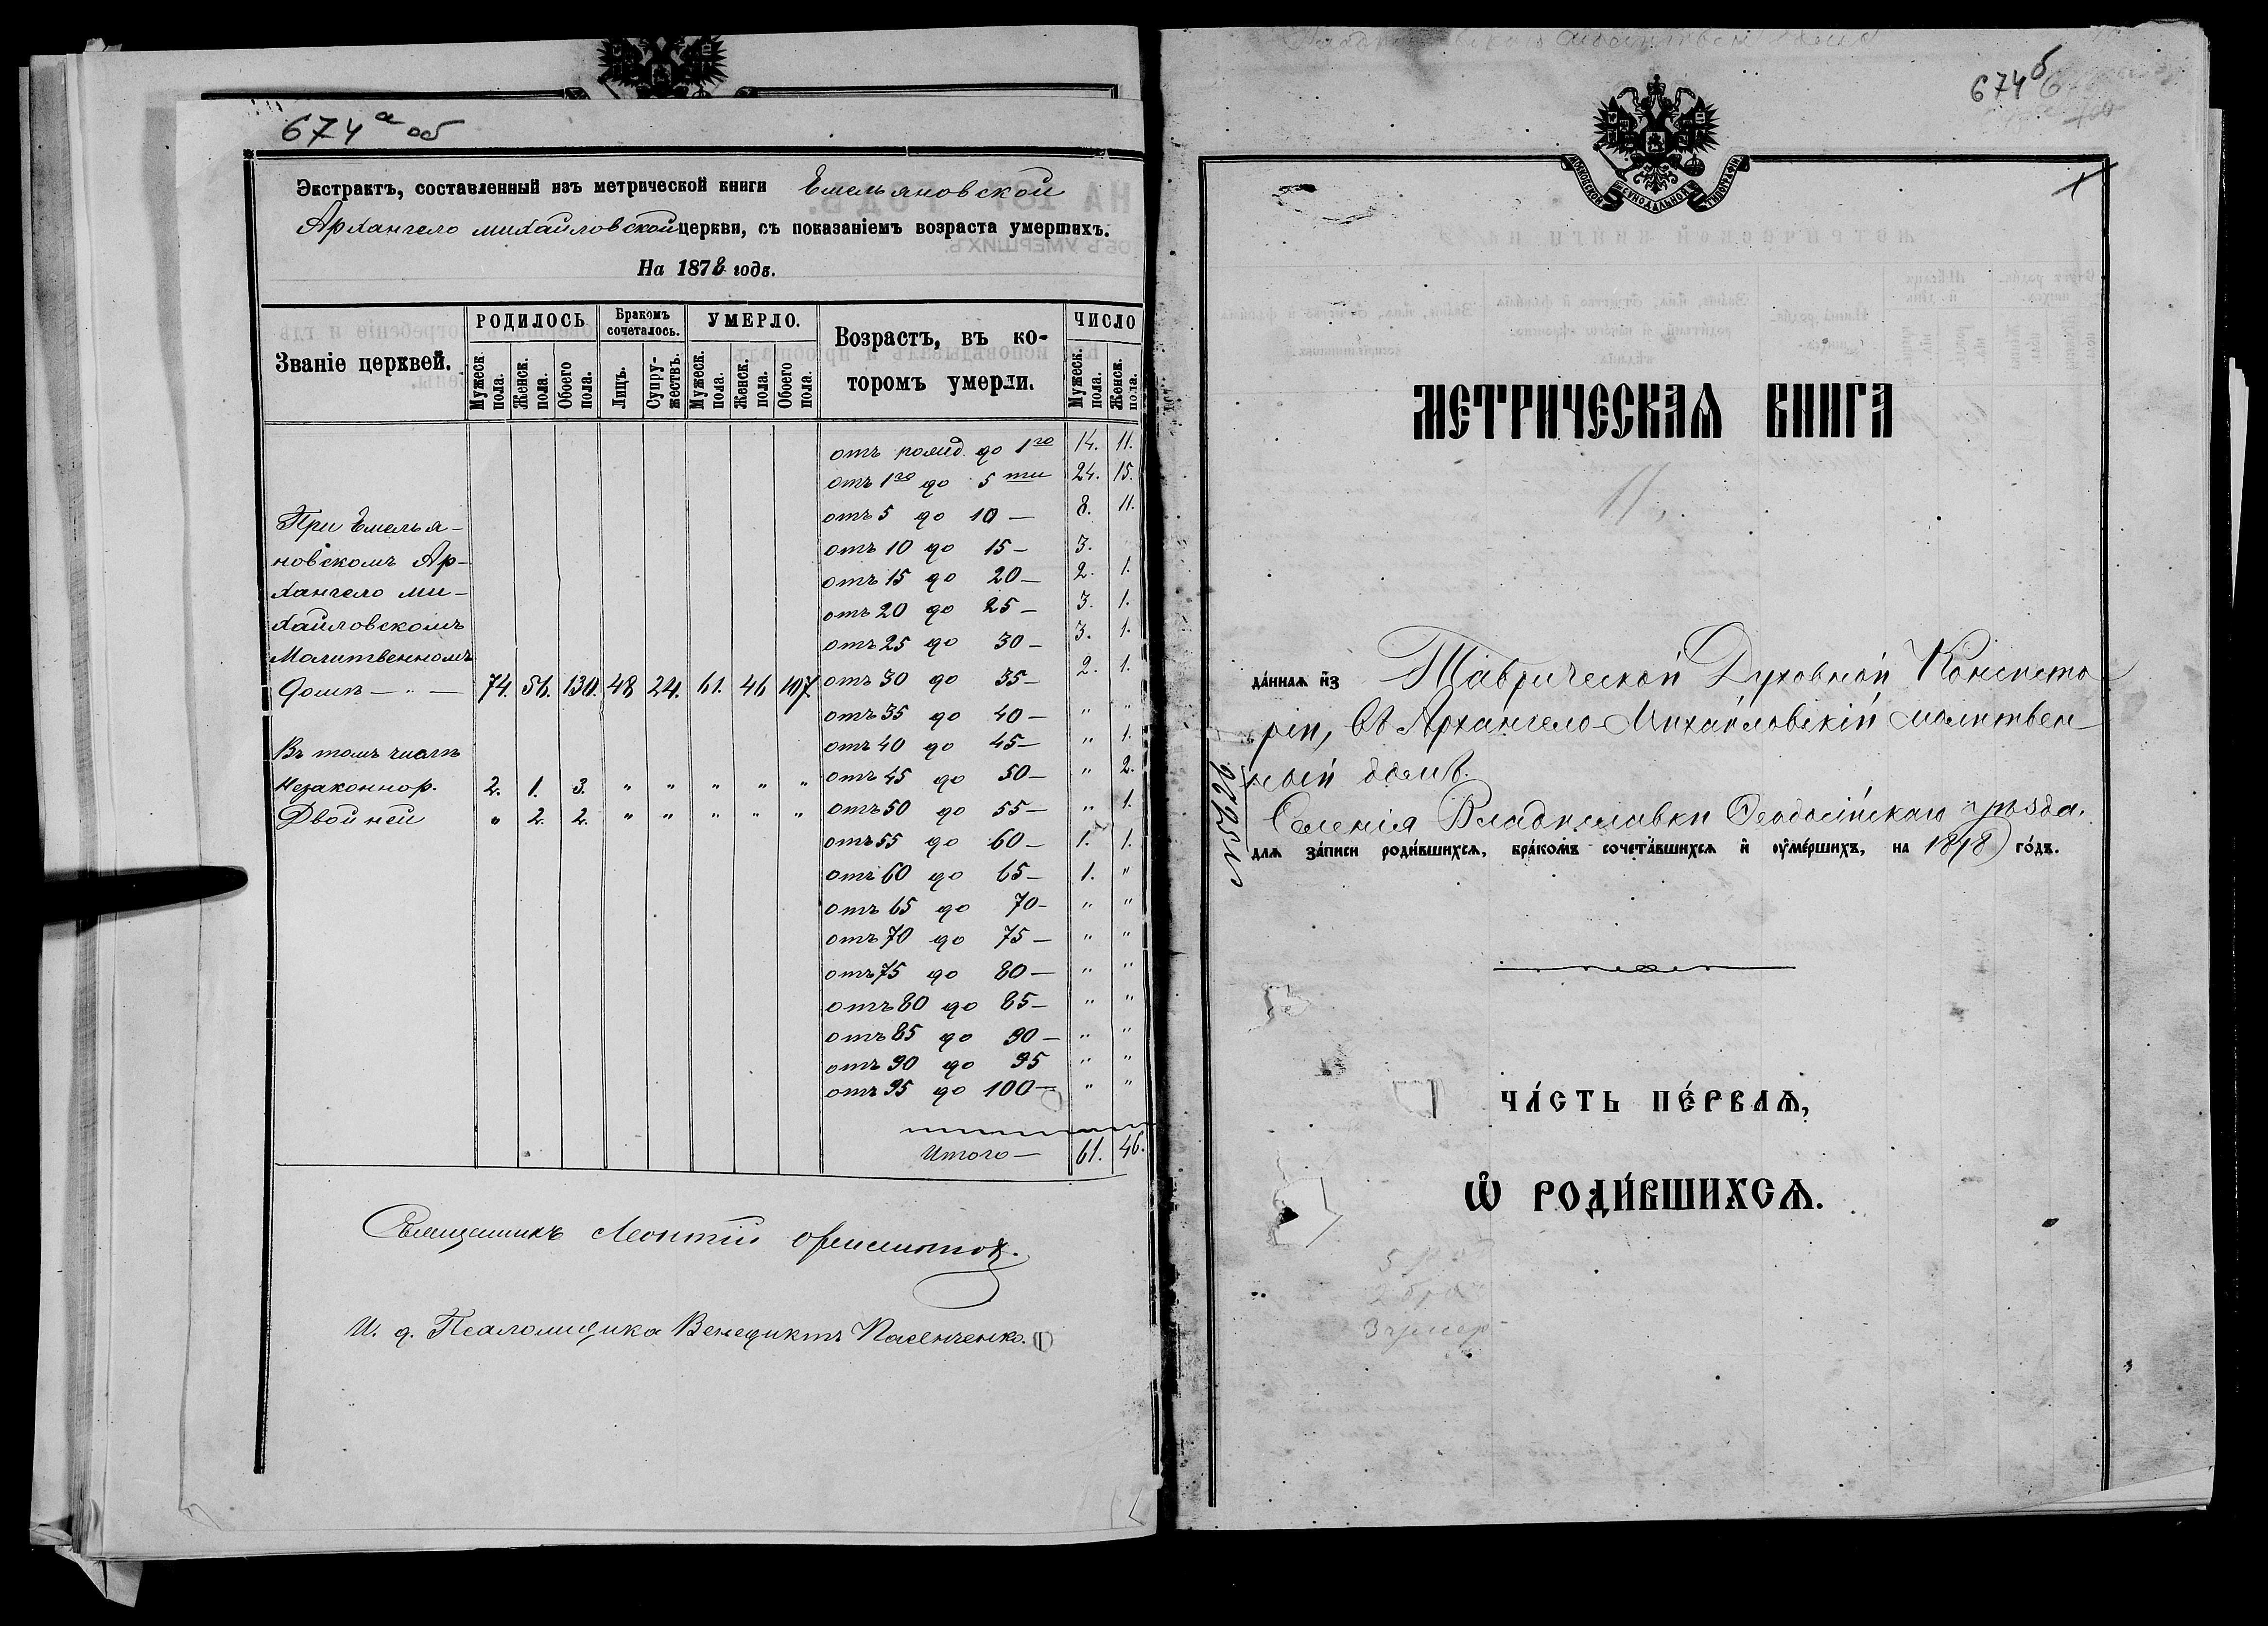 674 а об
Экстрактъ, составленный изъ метрической книги Емельяновской
Архангело михайловской церкви, съ показаніемъ возраста умершихъ.
На 1878 годъ.
Званіе церквей.
РОДИЛОСЬ
Бракомъ сочеталось.
УМЕРЛО.
Возрастъ, въ которомъ умерли.
ЧИСЛО
Мужеск. пола.
Женск. пола.
Обоего пола.
Лицъ.
Супружествъ.
Мужеск. пола.
Женск. пола.
Обоего пола.
Мужеск. пола.
Женск. пола.
отъ рожд. до 1го 14. 11.
отъ 1го до 5 ти 24. 15.
отъ 5 до 10 — 8. 11.
При Емелья-
отъ 10 до 15 — 3.
новскомъ Ар-
отъ 15 до 20 — 2. 1.
хангело ми-
отъ 20 до 25 — 3. 1.
хайловскомъ
отъ 25 до 30 — 3. 1.
Молитвенномъ
домѣ — " — 74. 56. 130. 48 24. 61. 46 107 отъ 30 до 35 — 2. 1.
отъ 35 до 40 — " "
Въ томъ числѣ
отъ 40 до 45 — " 1.
Незаконнор. 2. 1. 3. " " " " "
отъ 45 до 50 — " 2.
Двойней " 2. 2. " " " " "
отъ 50 до 55 — " 1.
отъ 55 до 60 — 1. 1.
отъ 60 до 65 — 1. "
отъ 65 до 70 — " "
отъ 70 до 75 — " "
отъ 75 до 80 — " "
отъ 80 до 85 — " "
отъ 85 до 90 — " "
отъ 90 до 95 " "
отъ 95 до 100 — " "
Итого — 61. 46.
Священникъ Леонтій
И. д. Псаломщика Венедиктъ Пасенченко.
674 б
МОСКОВСКОЙ СУНОДАЛЬНОЙ ТИПОГРАФІИ
МЕТРИЧЕСКАѦ КНИГА
11,
да́ннаѧ и҆з Таврической Духовной Консисто
ріи, въ Архангело-Михайловскій молитвен
ный домъ
Селенія Владиславки Ѳеодосійскаго уѣзда.
длѧ за́писи роди́вшихсѧ, бра́комъ сочета́вшихсѧ и҆ ᲂу҆ме́ршихъ, на 1878 го́дъ.
№ 5926
ЧА́СТЬ ПЕ́РВАѦ,
Ѡ҆ РОДИ́ВШИХСѦ.